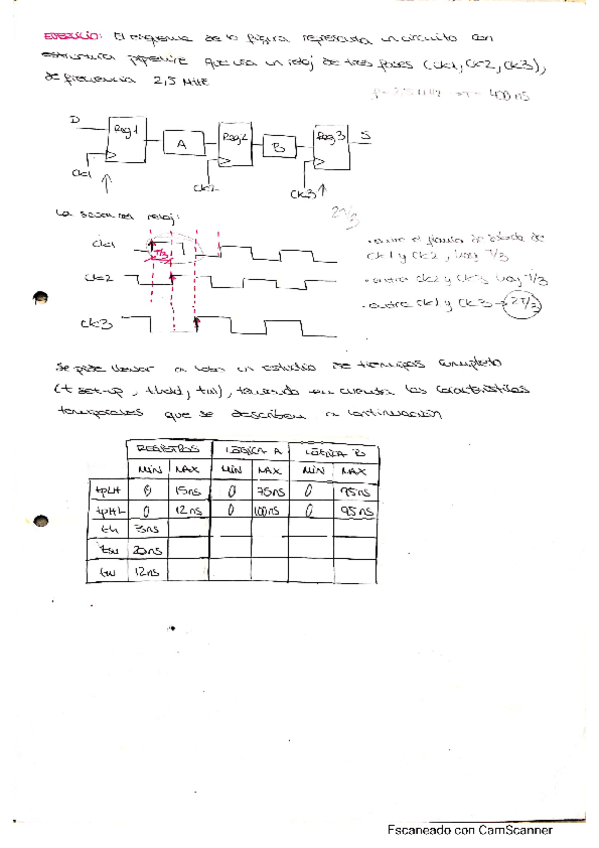 EJERCICIO: El esquema de la figura representa un circuito con
estructura pipeline que usa un reloj de tres fases (Ck1, Ck2, Ck3),
de frecuencia 2,5 MHz
400 ns
D
Reg1
A
Reg2
B
Reg3
S
Ck1
Ck2
Ck3
La secuencia reloj:
2T/3
Ck1
T/3
Ck2
Ck3
· entre el flanco de subida de
Ck1 y Ck2, hay T/3
· entre Ck2 y Ck3 hay T/3
· entre Ck1 y Ck3 → 2T/3
Se pide llevar a cabo un estudio de tiempos completo
(t set-up, t hold, tw), teniendo en cuenta las características
temporales que se describen a continuación
REGISTROS LÓGICA A LÓGICA B
MIN MAX MIN MAX MIN MAX
tpLH 0 15ns 0 75ns 0 75ns
tpHL 0 12ns 0 100ns 0 95ns
th 3ns
tsu 20ns
tw 12ns
Escaneado con CamScanner